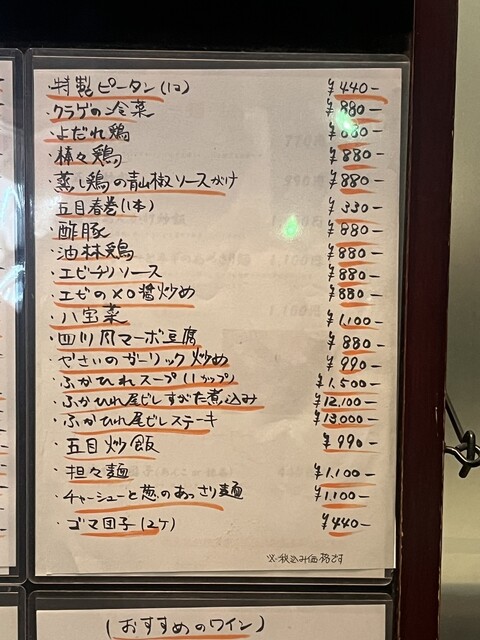 ・特製ピータン(1コ) ¥440-
・クラゲの冷菜 ¥880-
・よだれ鶏 ¥880-
・棒々鶏 ¥880-
・蒸し鶏の青山椒ソースがけ ¥880-
・五目春巻(1本) ¥330-
・酢豚 ¥880-
・油林鶏 ¥880-
・エビチリソース ¥880-
・エビのXO醤炒め ¥880-
・八宝菜 ¥1.100-
・四川風マーボ豆腐 ¥880-
・やさいのガーリック炒め ¥990-
・ふかひれスープ(1カップ) ¥1.500-
・ふかひれ尾びれすがた煮込み ¥12.100-
・ふかひれ尾びれステーキ ¥13000-
・五目炒飯 ¥990-
・担々麺 ¥1.100-
・チャーシューと葱のあっさり麺 ¥1.100-
・ゴマ団子(2ケ) ¥440-
※税込み価格です
(おすすめのワイン)